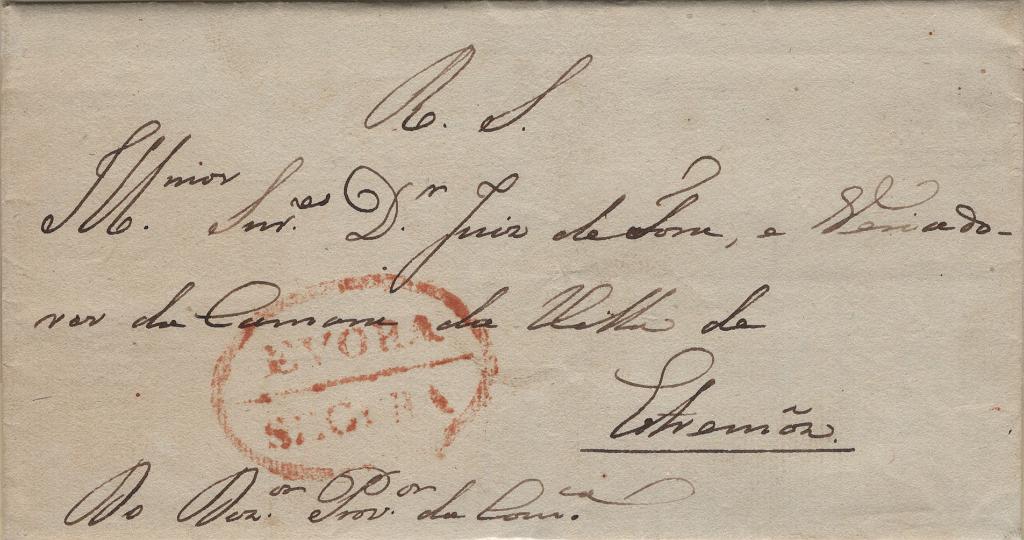 R. S.
Ill.mos Snr.es D.r Juiz de Fora, e Veriado-
res da Camara da Villa de
EVORA
SEGURA
Estremôz.
Do Dez.or Prov.or da Com.ca